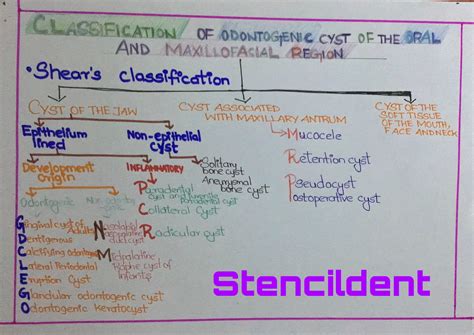 CLASSIFICATION OF ODONTOGENIC CYST OF THE ORAL
AND MAXILLOFACIAL REGION
• Shear's classification
CYST OF THE JAW
Epithelium
lined
Development
origin
Odontogenic
Gingival cyst of
Dentigenous
Calcifying odontogenic
Lateral Periodontal
Eruption Cyst
Glandular odontogenic cyst
Odontogenic keratocyst
Non odontogenic
Nasopalatine
duct cyst
Midpalatine
Raphe cyst of
Infants
INFLAMMATORY
Paradental
cyst
Collateral Cyst
Radicular cyst
Non-epithelial
Cyst
Solitary
bone cyst
Aneurysmal
bone cyst
CYST ASSOCIATED
WITH MAXILLARY ANTRUM
Mucocele
Retention cyst
Pseudocyst
Postoperative cyst
CYST OF THE
SOFT TISSUE
OF THE MOUTH,
FACE AND NECK
Stencildent